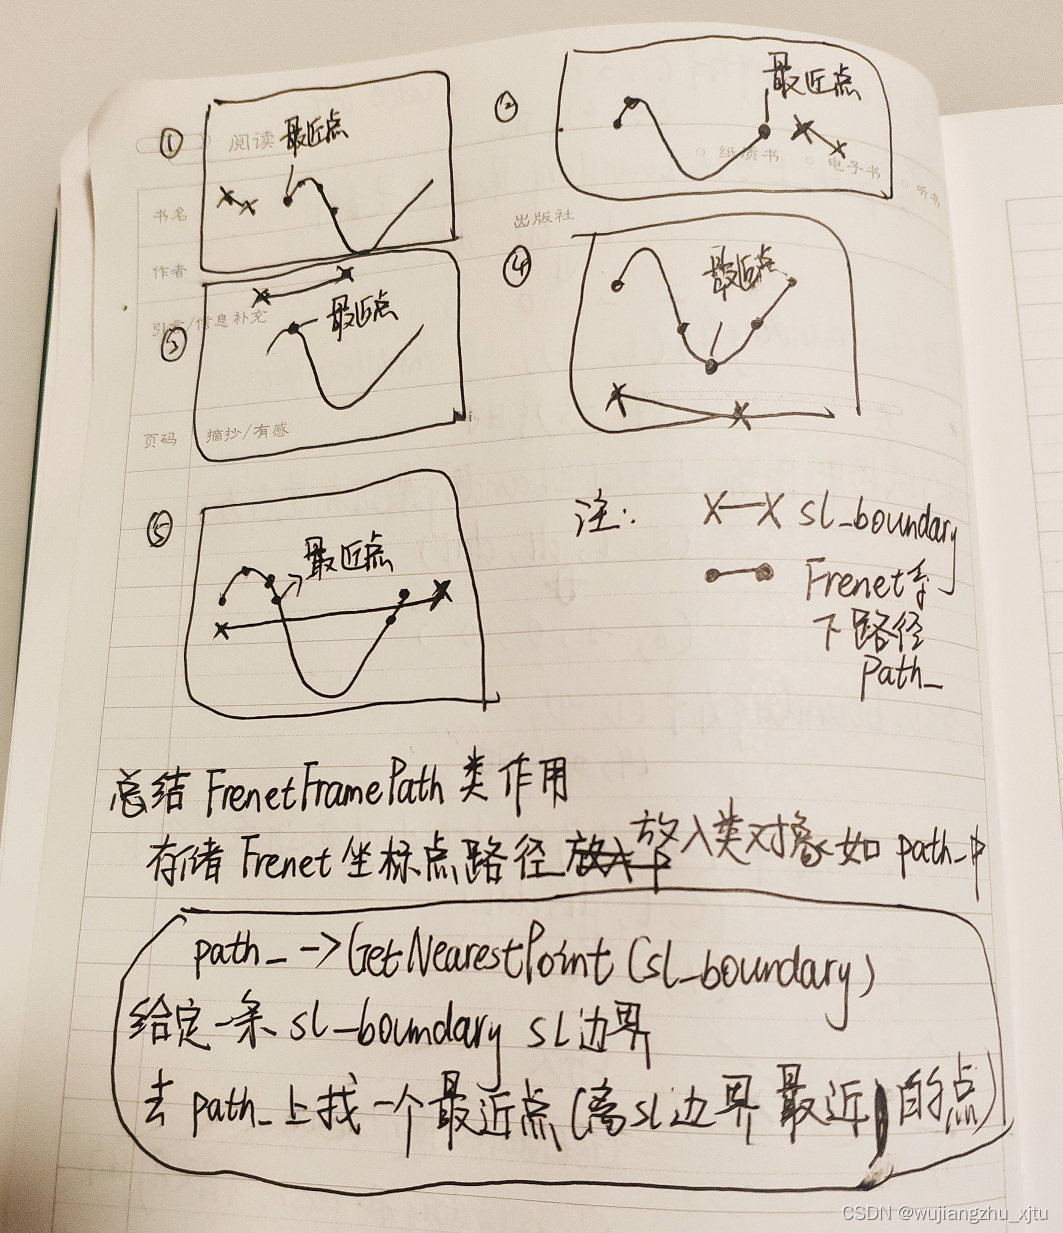 ① 阅读 最近点
② 最近点
○ 纸质书 ○ 电子书 ○ 听书
书名 出版社
作者
④ 最近点
引言/信息补充
③ 最近点
页码 摘抄/有感
⑤ 最近点
注: X—X sl_boundary
Frenet系
下路径
Path_
总结 FrenetFramePath 类作用
存储 Frenet 坐标点路径 放入类对象如 path_中
path_->GetNearestPoint(sl_boundary)
给定一条 sl_boundary SL边界
去 path_上找一个最近点(离SL边界最近的点)
CSDN @wujiangzhu_xjtu